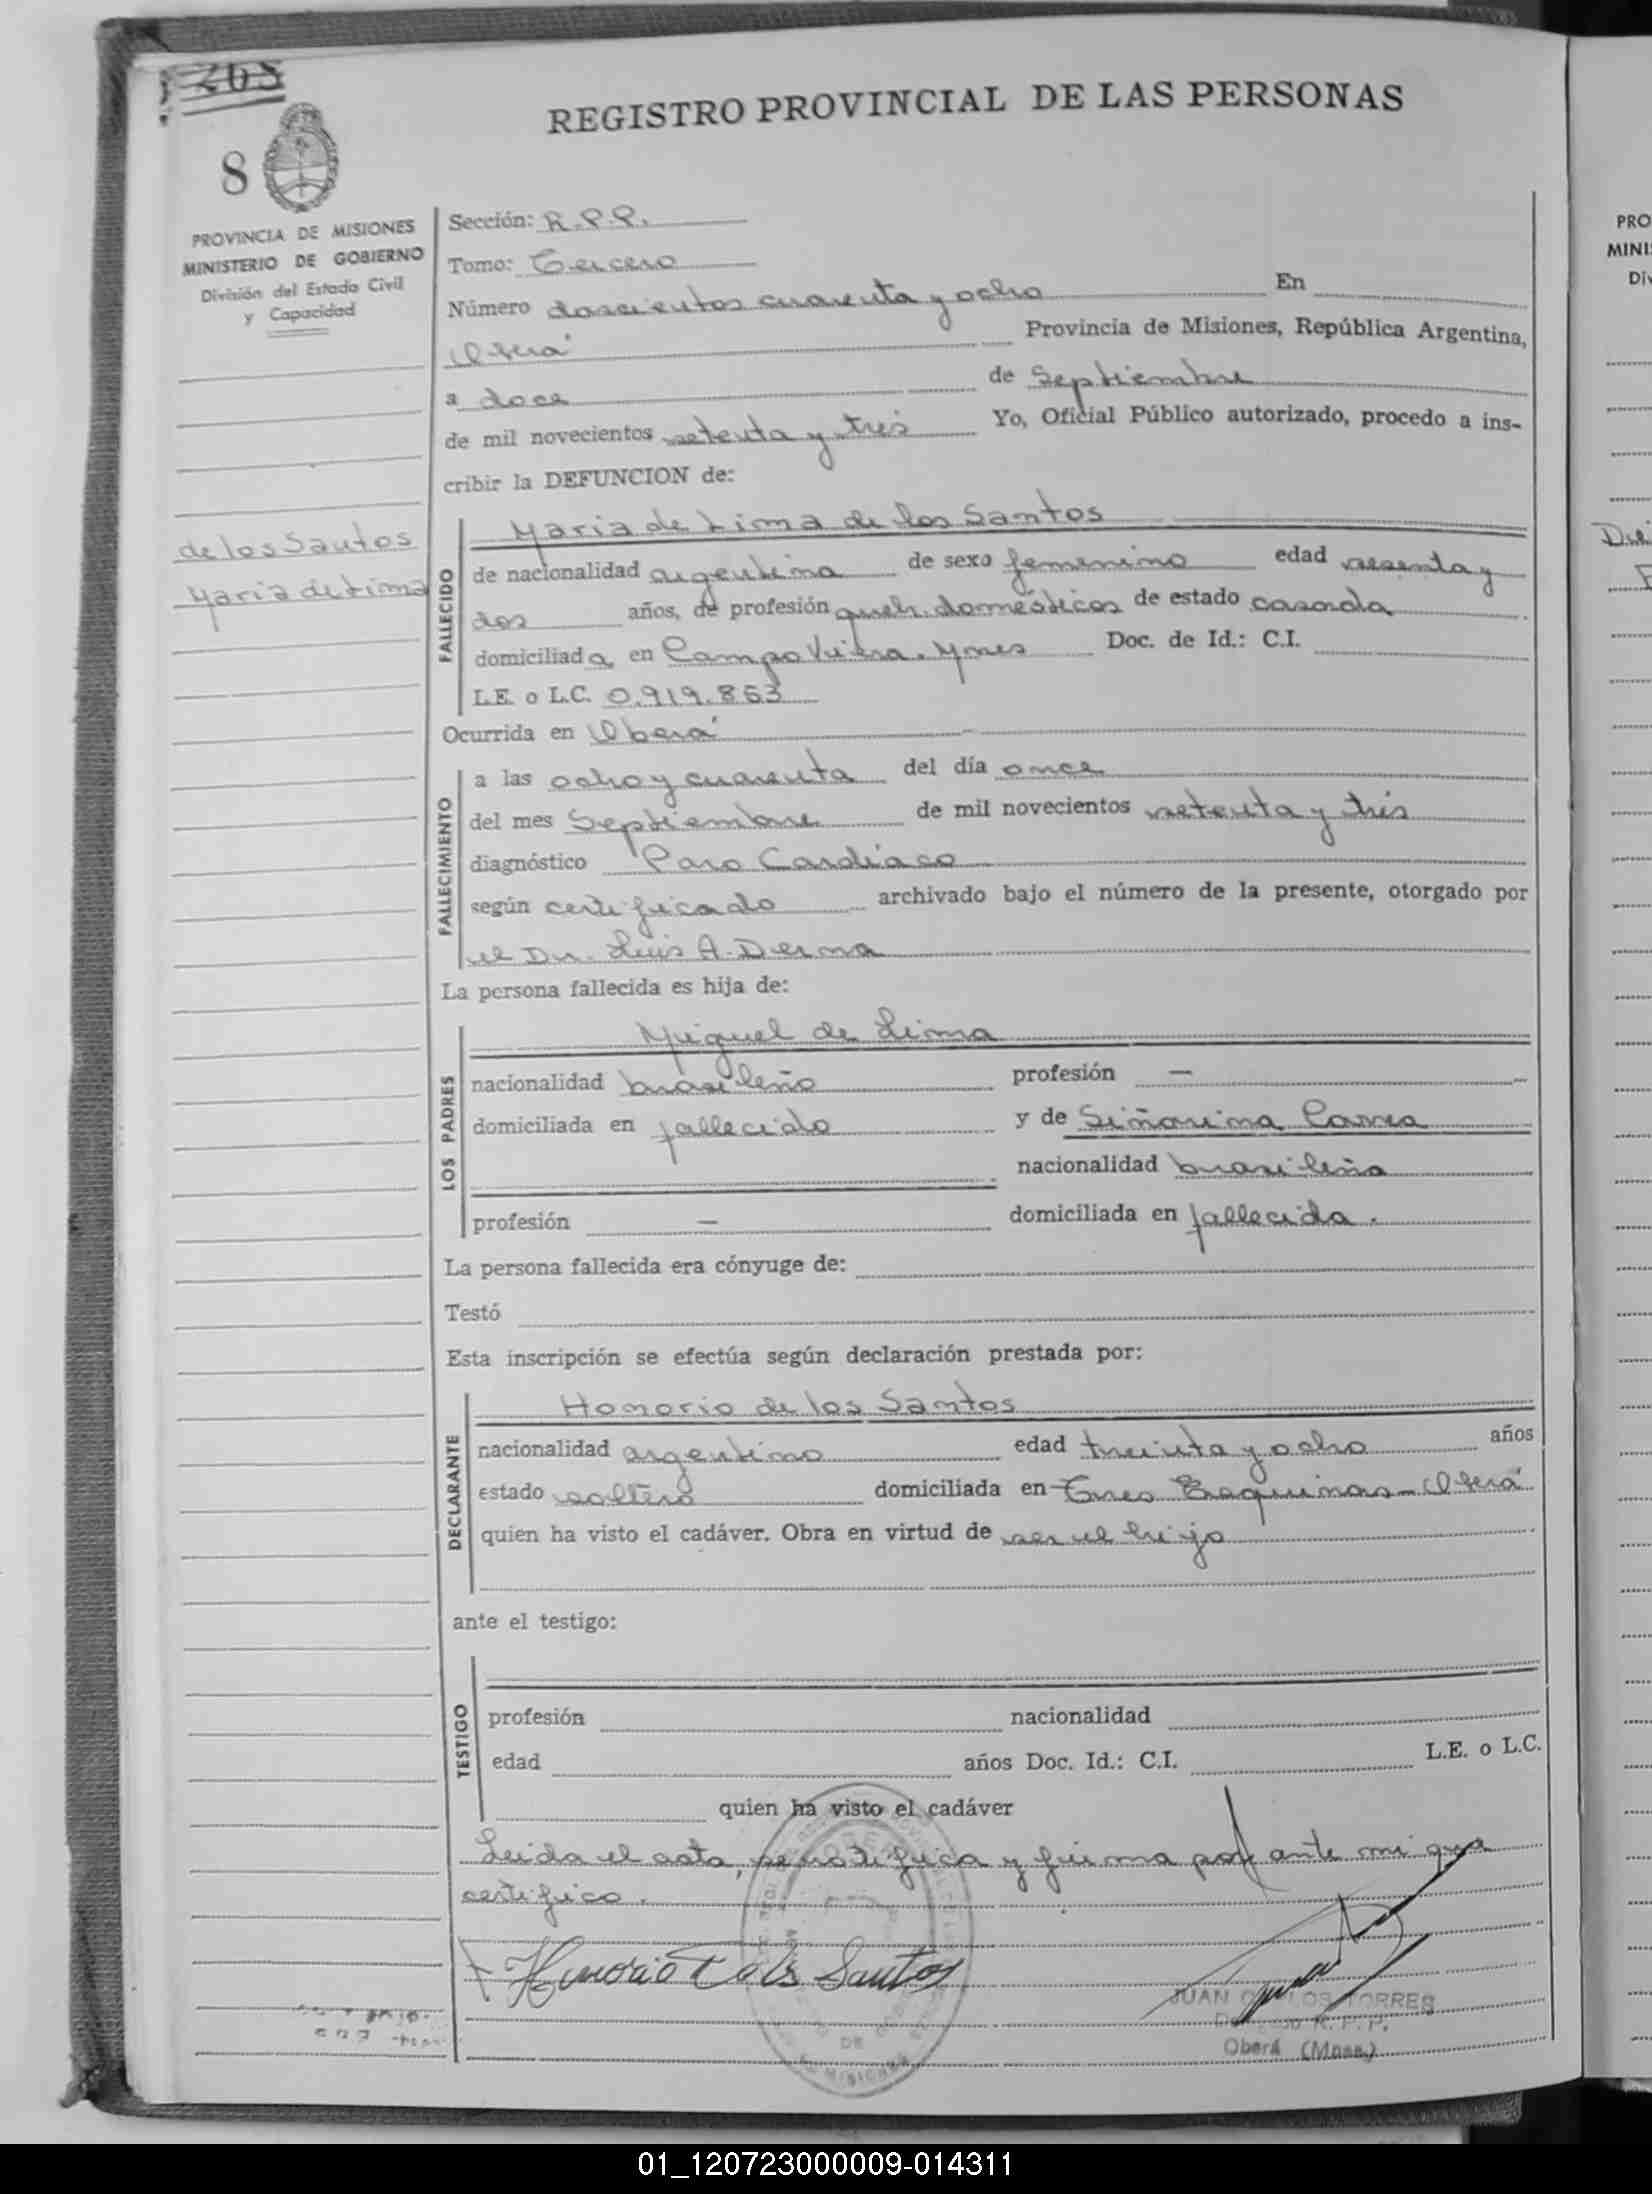 268
REGISTRO PROVINCIAL DE LAS PERSONAS
8
PROVINCIA DE MISIONES
MINISTERIO DE GOBIERNO
División del Estado Civil
y Capacidad
Sección: R.P.P.
Tomo: Tercero
Número doscientos cuarenta y ocho En
Oberá Provincia de Misiones, República Argentina,
a doce de Septiembre
de mil novecientos setenta y tres Yo, Oficial Público autorizado, procedo a ins-
cribir la DEFUNCION de:
de los Santos
Maria de Lima
FALLECIDO
Maria de Lima de los Santos
de nacionalidad argentina de sexo femenino edad sesenta y
dos años, de profesión queh. domésticos de estado casada
domiciliada en Campo Viera. Mnes Doc. de Id.: C.I.
L.E. o L.C. 0.919.863
Ocurrida en Oberá
FALLECIMIENTO
a las ocho y cuarenta del día once
del mes Septiembre de mil novecientos setenta y tres
diagnóstico Paro Cardíaco
según certificado archivado bajo el número de la presente, otorgado por
el Dr. Luis A. Derna
La persona fallecida es hija de:
LOS PADRES
Miguel de Lima
nacionalidad brasileño profesión —
domiciliada en fallecido y de Siñorina Correa
nacionalidad brasileña
profesión — domiciliada en fallecida.
La persona fallecida era cónyuge de:
Testó
Esta inscripción se efectúa según declaración prestada por:
DECLARANTE
Honorio de los Santos
nacionalidad argentino edad treinta y ocho años
estado soltero domiciliada en Tres Esquinas - Oberá
quien ha visto el cadáver. Obra en virtud de ser el hijo
ante el testigo:
TESTIGO
profesión nacionalidad
edad años Doc. Id.: C.I. L.E. o L.C.
quien ha visto el cadáver
Leida el acta, se ratifica y firma por ante mi que
certifico.
Honorio De los Santos
JUAN CARLOS TORRES
R. P. P.
Oberá (Mnes.)
PRO
MINI
Div
01_120723000009-014311